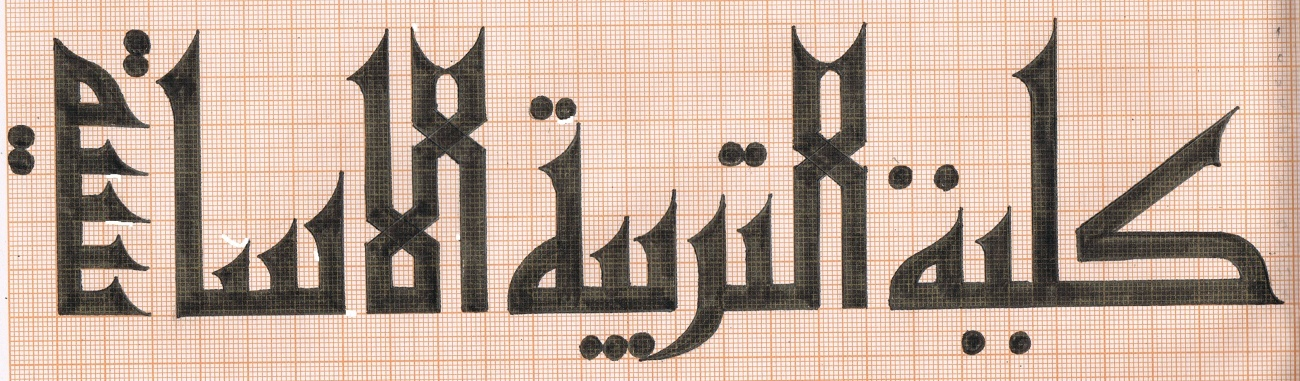 كلية التربية الاساسية